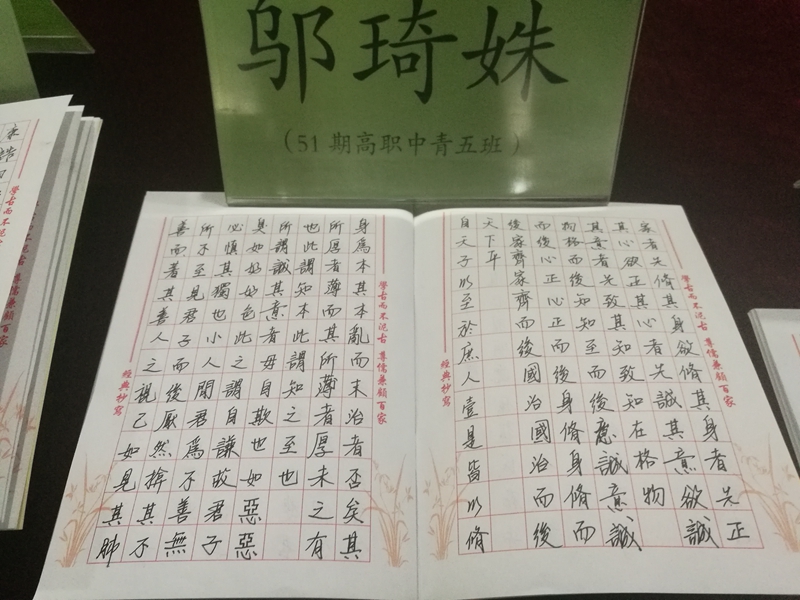 邬琦姝
（51期高职中青五班）
學古而不泥古 尊儒兼顧百家
家者先脩其身欲脩其身者先正
其心欲正其心者先誠其意欲誠
其意者先致其知致知在格物
物格而後知知至而後意誠意誠
而後心正心正而後身脩身脩而
後家齊家齊而後國治國治而後
天下平
自天子以至於庶人壹是皆以脩
經典抄寫
學古而不泥古 尊儒兼顧百家
身為本其本亂而末治者否矣其
所厚者薄而其所薄者厚未之有
也此謂知本此謂知之至也
所謂誠其意者毋自欺也如惡惡
臭如好好色此之謂自謙故君子
必慎其獨也小人閒居為不善無
所不至見君子而後厭然揜其不
善而著其善人之視己如見其肺
經典抄寫
學古而不泥古 尊儒兼顧百家